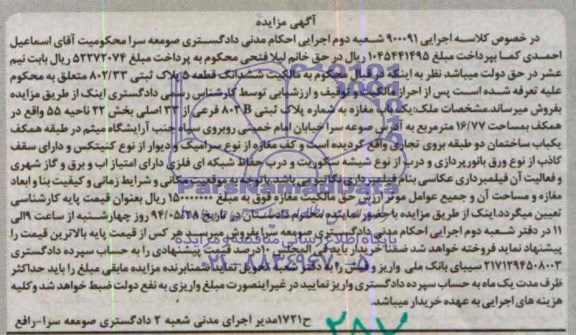 آگهی مزایده
در خصوص کلاسه اجرایی ۹۰۰۰۹۱ شعبه دوم اجرایی احکام مدنی دادگستری صومعه سرا محکومیت آقای اسماعیل
احمدی کما بپرداخت مبلغ ۱۰۴۵۴۴۱۴۹۵ ریال در حق خانم لیلا فتحی محکوم به پرداخت مبلغ ۵۲۲۷۲۰۷۴ ریال بابت نیم
عشر در حق دولت میباشد نظر به اینکه در قبال محکوم به مالکیت ششدانگ قطعه ۵ پلاک ثبتی ۸۰۲/۳۳ متعلق به محکوم
علیه تعرفه شده است پس از احراز مالکیت و توقیف و ارزشیابی توسط کارشناس رسمی دادگستری اینک از طریق مزایده
بفروش میرساند.مشخصات ملک:یکباب مغازه به شماره پلاک ثبتی ۸۰۲B فرعی از ۳۳ اصلی بخش ۲۲ ناحیه ۵۵ واقع در
همکف بمساحت ۱۶/۷۷ مترمربع به آدرس صومعه سرا خیابان امام خمینی روبروی سپاه جنب آرایشگاه میثم در طبقه همکف
یکباب ساختمان دو طبقه بروی تجاری واقع گردیده است و کف مغازه از نوع سرامیک و دیوار از نوع کنیتکس و دارای سقف
کاذب از نوع ورق بانورپردازی و درب از نوع شیشه سکوریت و درب حفاظ شبکه ای فلزی دارای امتیاز اب و برق و گاز شهری
و فعالیت آن فیلمبرداری عکاسی بنام فیلمبرداری یگانه می باشد با توجه به موقعیت مکانی و شرایط زمانی و کیفیت بنا و ابعاد
مغازه و مساحت آن و جمیع عوامل موثر ارزش حق مالکیت مغازه فوق به مبلغ ریال بعنوان قیمت پایه کارشناسی
تعیین میگردد.اینک از طریق مزایده با حضور نماینده محترم دادستان در تاریخ ۹۴/۰۵/۲۸ روز چهارشنبه از ساعت ۹الی
۱۱ در دفتر شعبه دوم اجرایی احکام مدنی دادگستری صومعه سرا بفروش میرسد هر کس از قیمت پایه بالاترین قیمت را
پیشنهاد نماید فروخته خواهد شد ضمنا خریدار باید فی المجلس ۱۰درصد قیمت پیشنهادی را به حساب سپرده دادگستری
۲۱۷۱۲۹۴۵۰۸۰۰۳ سیبای بانک ملی واریز و فیش را به دفتر شعبه تحویل نماید ضمنابرنده مزایده مابقی مبلغ را باید حداکثر
ظرف مدت یک ماه به حساب سپرده دادگستری واریز نمایید در غیراینصورت مبلغ واریزی به نفع دولت ضبط خواهد شد وکلیه
هزینه های اجرایی به عهده خریدار میباشد.
ح۱۷۲۱مدیر اجرای مدنی شعبه ۲ دادگستری صومعه سرا-رافع
ParsNamadData
پایگاه اطلاع رسانی مناقصه و مزایده
۰۲۱-۸۸۳۴۹۶۷۰-۵